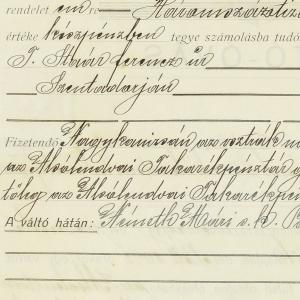 rendelet en re Háromszáztiz
értéke készpénzben tegye számolásba tudó
T. Stár Ferencz úr
Szentadorján
Fizetendő Nagykanizsán az osztrák m
az Alsólendvai Takarékpénztár
tóleg az Alsólendvai Takarékpén
A váltó hátán: Németh Mári s.k.